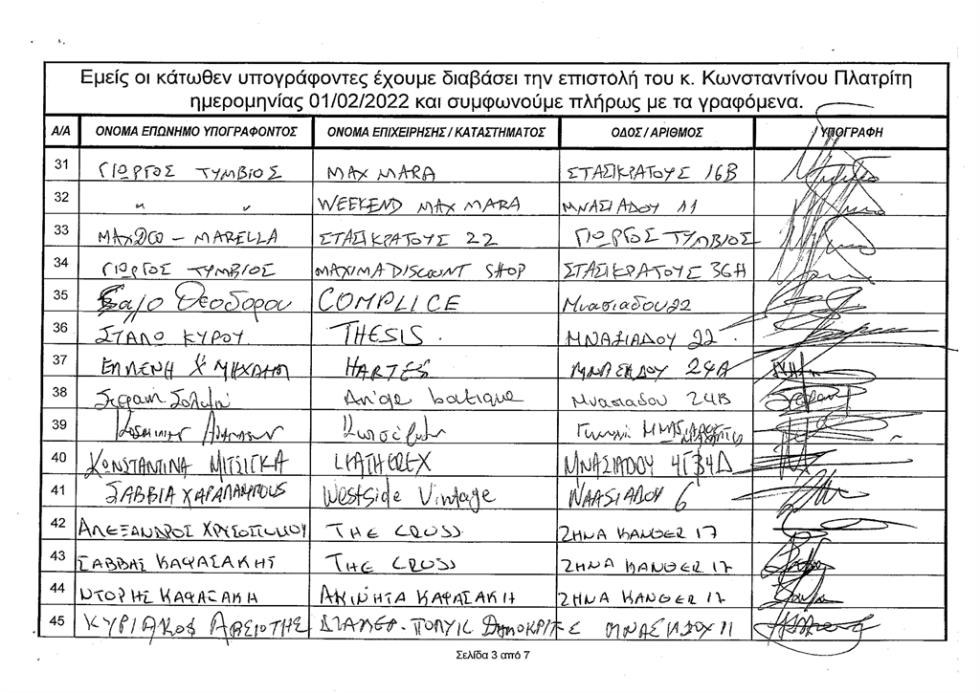 Εμείς οι κάτωθεν υπογράφοντες έχουμε διαβάσει την επιστολή του κ. Κωνσταντίνου Πλατρίτη
ημερομηνίας 01/02/2022 και συμφωνούμε πλήρως με τα γραφόμενα.
Α/Α ΟΝΟΜΑ ΕΠΩΝΗΜΟ ΥΠΟΓΡΑΦΟΝΤΟΣ ΟΝΟΜΑ ΕΠΙΧΕΙΡΗΣΗΣ / ΚΑΤΑΣΤΗΜΑΤΟΣ ΟΔΟΣ / ΑΡΙΘΜΟΣ ΥΠΟΓΡΑΦΗ
31 ΓΙΩΡΓΟΣ ΤΥΜΒΙΟΣ MAX MARA ΣΤΑΣΙΚΡΑΤΟΥΣ 16Β
32 " " WEEKEND MAX MARA ΜΝΑΣΙΑΔΟΥ 11
33 MAX&CO - MARELLA ΣΤΑΣΙΚΡΑΤΟΥΣ 22 ΓΙΩΡΓΟΣ ΤΥΜΒΙΟΣ
34 ΓΙΩΡΓΟΣ ΤΥΜΒΙΟΣ MAXIMA DISCOUNT SHOP ΣΤΑΣΙΚΡΑΤΟΥΣ 36Η
35 Θεοδορου COMPLICE Μνασιαδου 22
36 ΣΤΑΛΩ ΚΥΡΟΥ THESIS. ΜΝΑΣΙΑΔΟΥ 22
37 ΕΛΛΕΝΗ Χ" ΜΗΧΑΗΛ HARTES 24Α
38 boutique Μνασιαδου 24Β
39
40 ΚΩΝΣΤΑΝΤΙΝΑ ΜΙΤΣΙΓΚΑ LEATHEREX ΜΝΑΣΙΑΔΟΥ
41 ΣΑΒΒΙΑ ΧΑΡΑΛΑΜΠΟΥΣ Westside Vintage ΝΑΑΣΙΑΔΟΥ 6
42 ΑΛΕΞΑΝΔΡΟΣ THE CROSS ΖΗΝΑ ΚΑΝΘΕΡ 17
43 ΣΑΒΒΑΣ ΚΑΦΑΣΑΚΗΣ THE CROSS ΖΗΝΑ ΚΑΝΘΕΡ 17
44 ΝΤΟΡΗΣ ΚΑΦΑΣΑΚΗ ΑΚΙΝΗΤΑ ΚΑΦΑΣΑΚΗ ΖΗΝΑ ΚΑΝΘΕΡ 17
45 ΚΥΡΙΑΚΟΣ ΔΙΑΜΕΡ. ΠΟΛΥΚ ΔΗΜΟΚΡΙΤΣ 11
Σελίδα 3 από 7